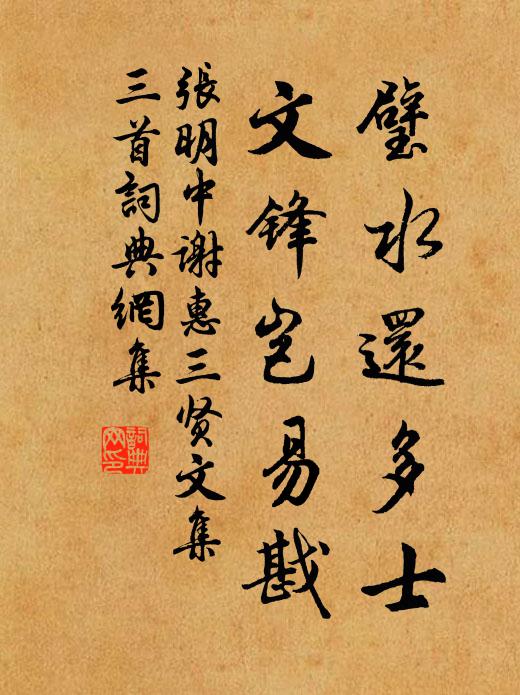 璧水還多士
文鋒豈易戡
張明中謝惠三贤文集
三首詞典網集
詞典網印